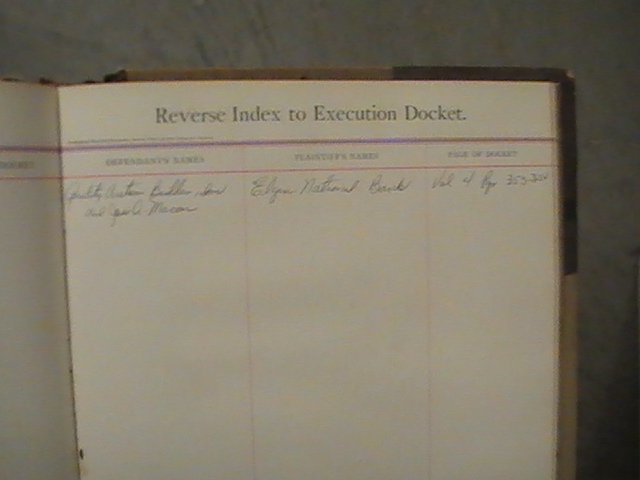 Reverse Index to Execution Docket.
DOCKET
DEFENDANT'S NAMES
PLAINTIFF'S NAMES
PAGE OF DOCKET
Quality Custom Builders, Inc
Elgin National Bank
Vol 4 Pgs 353-354
and A. Mason